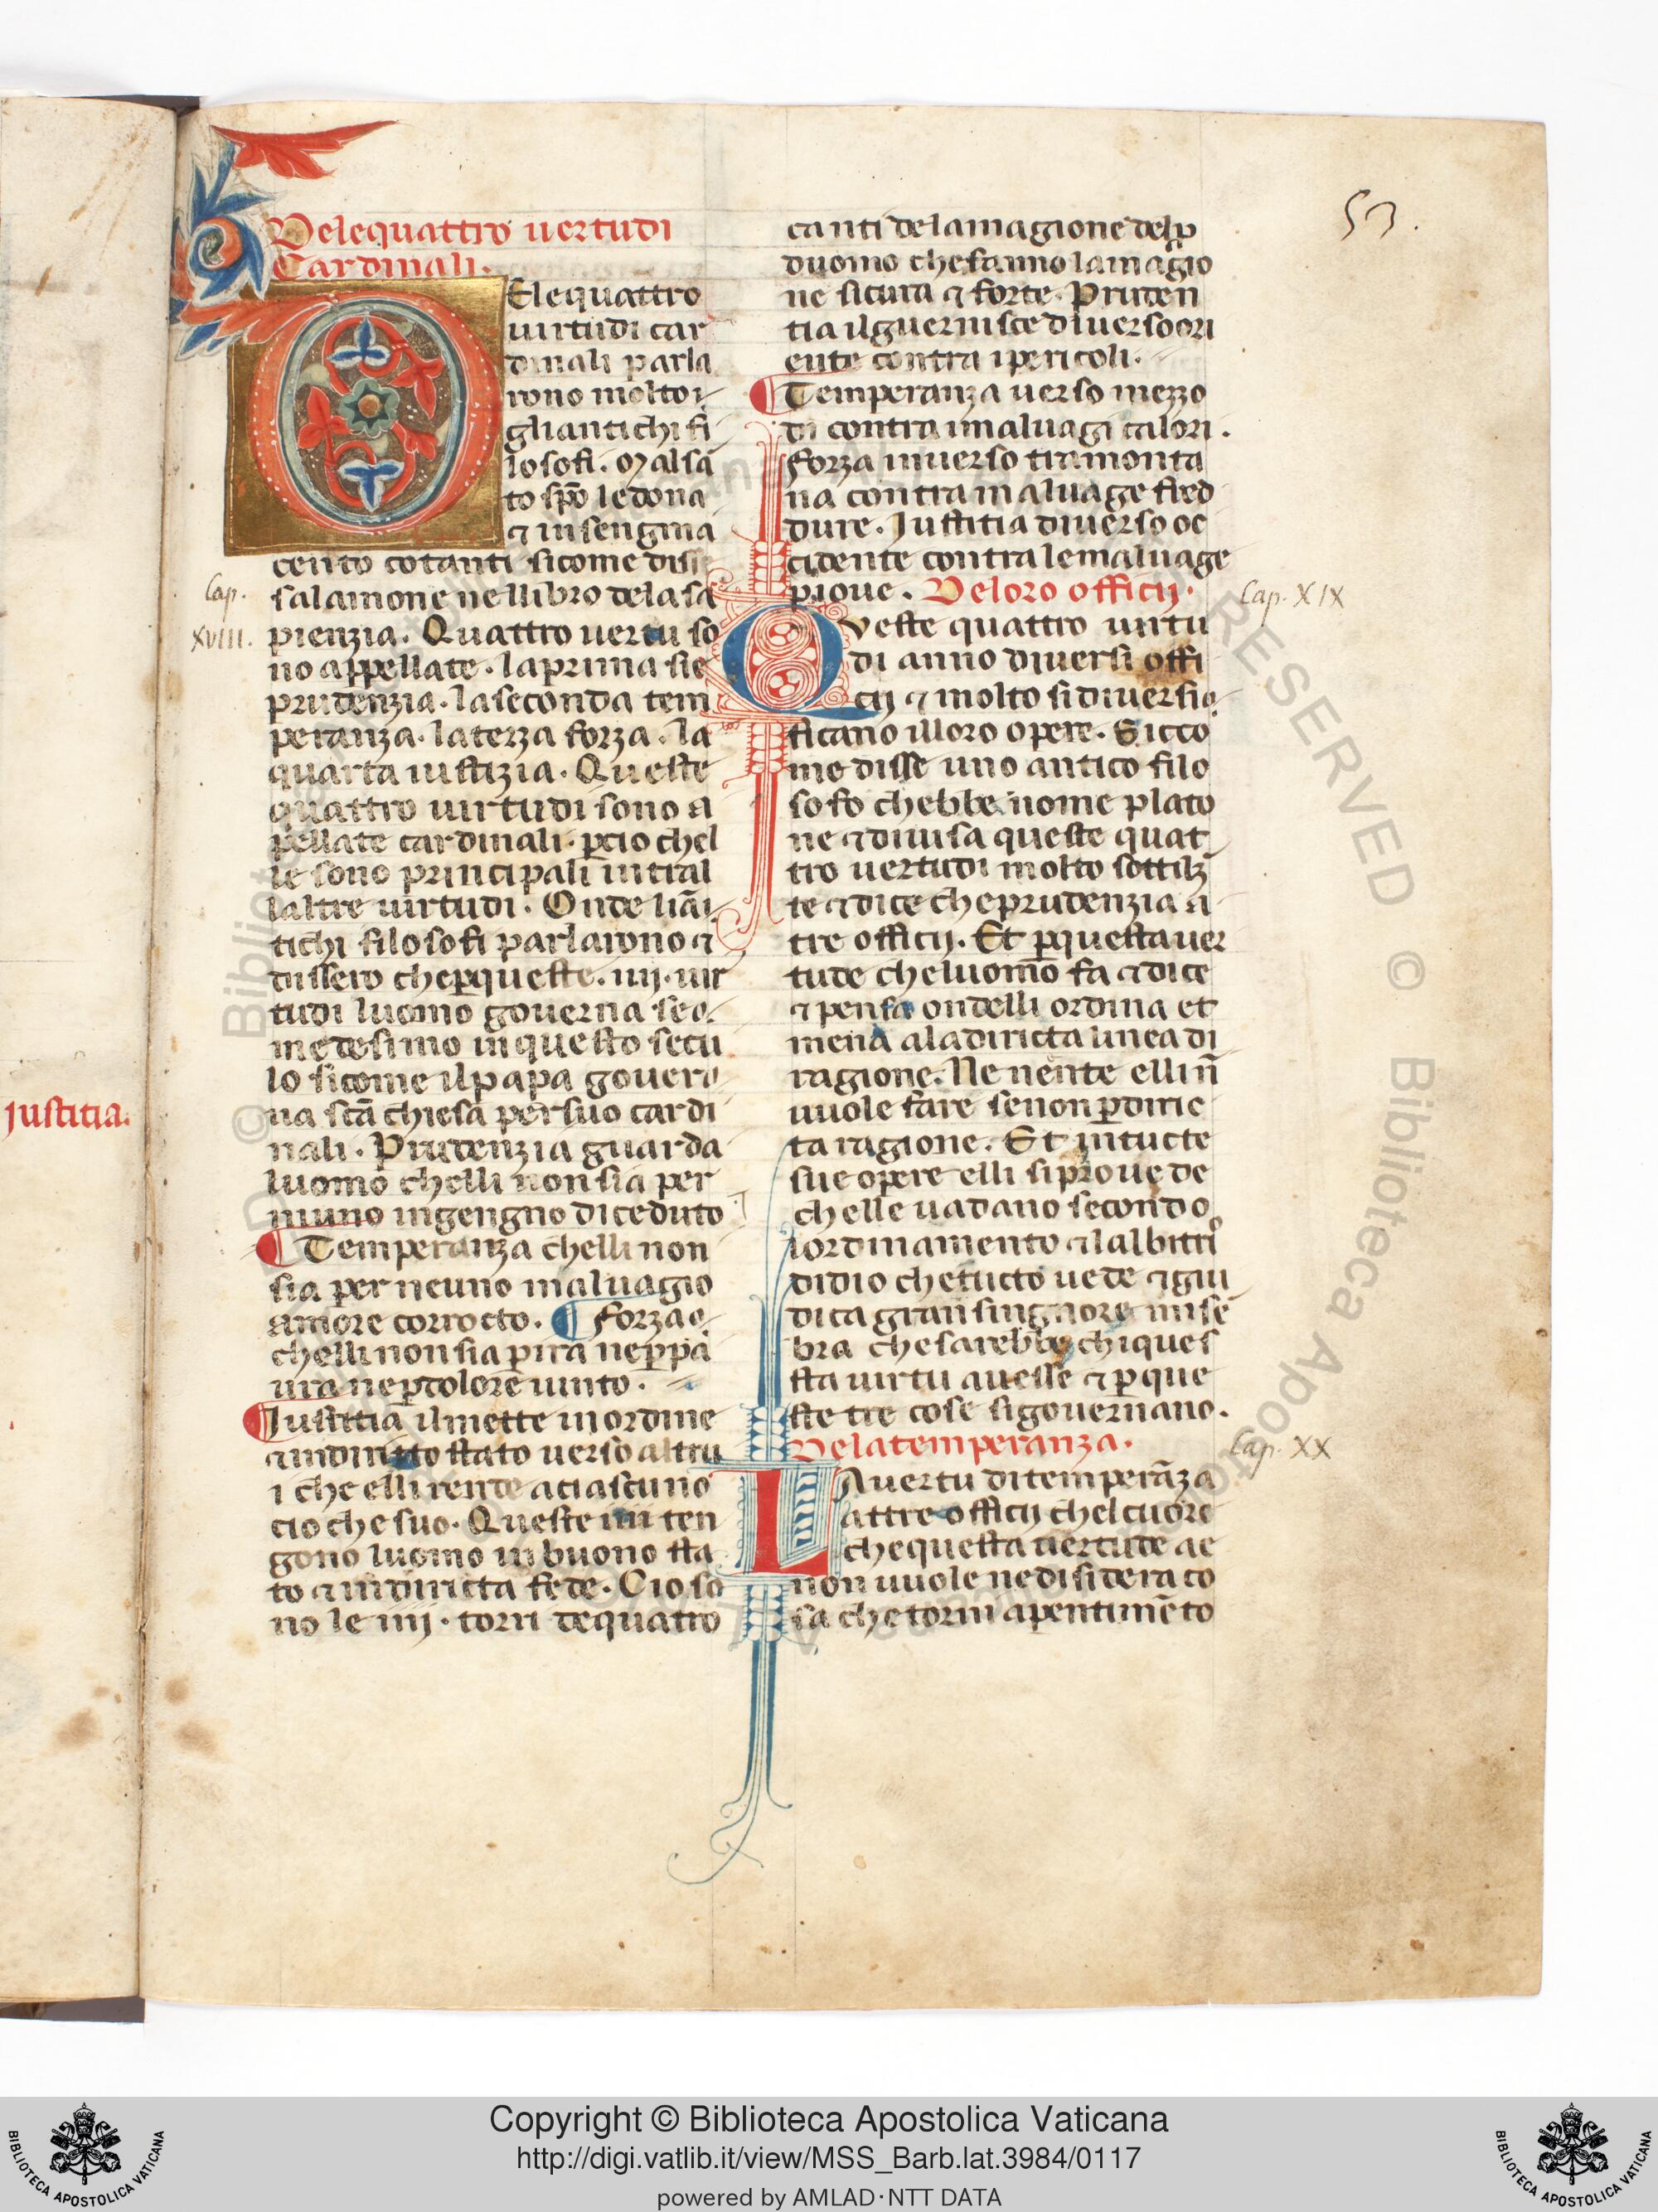 53.
Delequattro uertudi
Cardinali.
Elequattro
uirtudi car
dinali parla
rono molto i
gliantichi fi
losofi. Malsā
to sp̄o le dona
⁊ insengnia
cento cotanti sicome disse
salamone nellibro delasa
pienzia. Quattro uertu so
no appellate. laprima sie
prudenzia. laseconda tem
peranza. laterza forza. la
quarta iustizia. Queste
quattro uirtudi sono a
pellate cardinali. p̄cio chel
le sono principali intral
laltre uirtudi. Onde liāi
tichi filosofi parlarono ⁊
dissero cheꝑqueste. iiij. uir
tudi luomo gouerna seo
medesimo inquesto secu
lo sicome ilpapa gouero
na sc̄ā chiesa persuo cardi
nali. Prudenzia guarda
luomo chelli nonsia per
niuno ingengno diceduto
¶ Temperanza chelli non
sia per neuno maluagio
amore corrocto. ¶ Forza e
chelli nonsia pira neꝑpa
ura neꝑdolore uinto.
¶ Iustitia ilmette inordine
⁊indiritto stato uerso altru
i che elli rende aciascuno
cio che suo. Queste iiii ten
gono luomo inbuono sta
to ⁊indiricta fede. Cio so
no le iiij. torri dequatro
canti delamagione delp
duomo chefanno lamagio
ne sicura ⁊ forte. Pruden
tia ilguernisce diuersoori
ente contra ipericoli.
¶ Temperanza uerso mezzo
di contra imaluagi calori.
Forza inuerso tramonta
na contra maluage fred
dure. Iustitia diuerso oc
cidente contra lemaluage
pioue. Deloro officij.
Queste quattro uirtu
di anno diuersi offi
cij ⁊ molto sidiuersi
ficano illoro opere. Sicco
me disse uno antico filo
sofo chebbe nome plato
ne ⁊diuisa queste quat
tro uertudi molto sottilꝫ
te ⁊dice cheprudenzia a
tre officij. Et ꝑquestauer
tude cheluomo fa ⁊dice
⁊ pensa ondelli ordina et
mena aladiricta linea di
ragione. Ne nente elli n̄
uuole fare senon ꝑdiric
ta ragione. Et intucte
sue opere elli siprouede
chelle uadano secondo
lordinamento ⁊lalbitrio
didio chetucto uede ⁊giu
dica gran singnore mise
bra chesarebbe chiques
sta uirtu auesse ⁊ ꝑque
ste tre cose sigouernano.
Delatemperanza.
LAuertu ditemperāza
attre officij chelcuore
chequesta uertude ae
non uuole nedisidera co
sa chetorni apentimēto
Cap.
XVIII.
Cap. XIX
Cap. XX
Iustitia.
© Biblioteca Apostolica Vaticana
RESERVED
Copyright © Biblioteca Apostolica Vaticana
http://digi.vatlib.it/view/MSS_Barb.lat.3984/0117
powered by AMLAD·NTT DATA
BIBLIOTECA APOSTOLICA VATICANA
BIBLIOTECA APOSTOLICA VATICANA